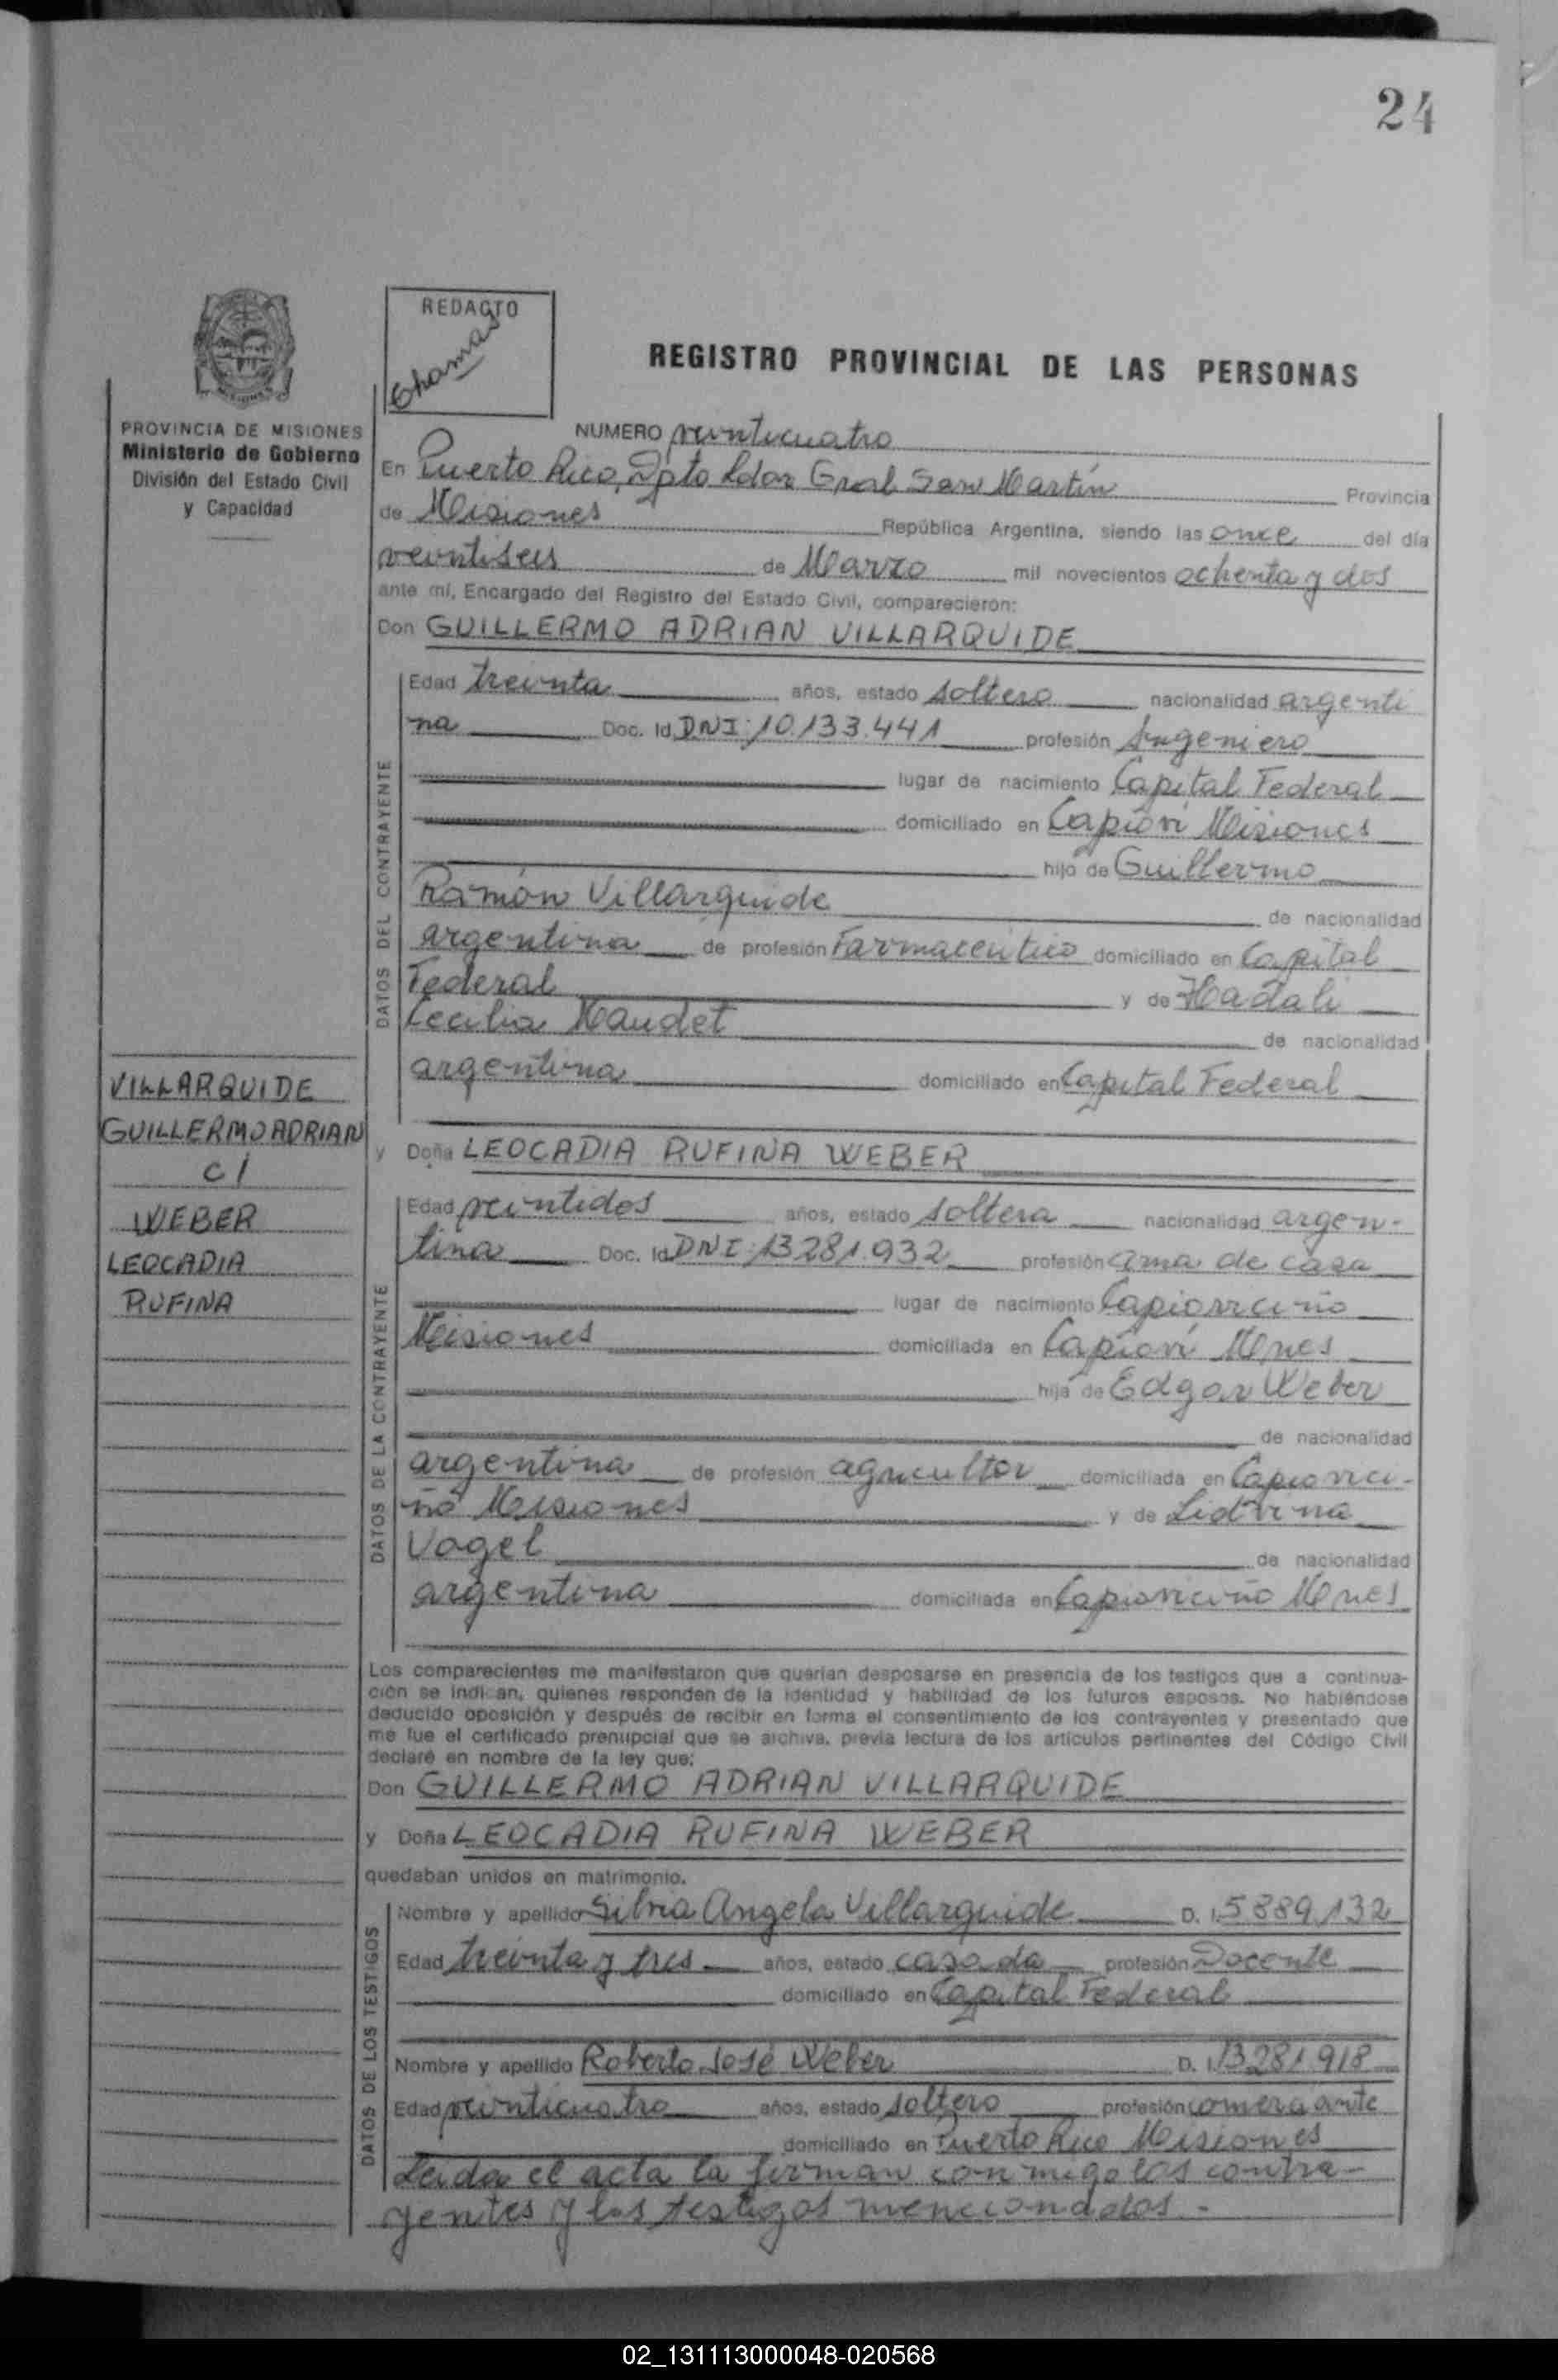 24
REDACTO
Chamas
REGISTRO PROVINCIAL DE LAS PERSONAS
PROVINCIA DE MISIONES
Ministerio de Gobierno
División del Estado Civil
y Capacidad
NUMERO veinticuatro
En Puerto Rico, Dpto Ldor Gral San Martín Provincia
de Misiones República Argentina, siendo las once del día
veintiseis de Marzo mil novecientos ochenta y dos
ante mí, Encargado del Registro del Estado Civil, comparecieron:
Don GUILLERMO ADRIAN VILLARQUIDE
DATOS DEL CONTRAYENTE
Edad treinta años, estado soltero nacionalidad argenti
na Doc. Id. DNI: 10.133.441 profesión Ingeniero
lugar de nacimiento Capital Federal
domiciliado en Capioví Misiones
hijo de Guillermo
Ramón Villarquide de nacionalidad
argentina de profesión Farmaceutico domiciliado en Capital
Federal y de
Cecilia Naudet de nacionalidad
argentina domiciliado en Capital Federal
VILLARQUIDE
GUILLERMO ADRIAN
c/
WEBER
LEOCADIA
RUFINA
y Doña LEOCADIA RUFINA WEBER
DATOS DE LA CONTRAYENTE
Edad veintidos años, estado soltera nacionalidad argen-
tina Doc. Id. DNI: 13281.932 profesión ama de casa
lugar de nacimiento Capioviciño
Misiones domiciliada en Capioví Mnes
hija de Edgar Weber
de nacionalidad
argentina de profesión agricultor domiciliada en Capiovici-
ño Misiones y de Lidvina
Vogel de nacionalidad
argentina domiciliada en Capioviciño Mnes
Los comparecientes me manifestaron que querían desposarse en presencia de los testigos que a continua-
ción se indican, quienes responden de la identidad y habilidad de los futuros esposos. No habiéndose
deducido oposición y después de recibir en forma el consentimiento de los contrayentes y presentado que
me fue el certificado prenupcial que se archiva, previa lectura de los artículos pertinentes del Código Civil
declaré en nombre de la ley que:
Don GUILLERMO ADRIAN VILLARQUIDE
y Doña LEOCADIA RUFINA WEBER
quedaban unidos en matrimonio.
DATOS DE LOS TESTIGOS
Nombre y apellido Silvia Angela Villarquide D. I. 5889.132
Edad treinta y tres años, estado casada profesión Docente
domiciliado en Capital Federal
Nombre y apellido Roberto José Weber D. I. 13281918
Edad veinticuatro años, estado soltero profesión comerciante
domiciliado en Puerto Rico Misiones
Leida el acta la firman conmigo los contra-
yentes y los testigos mencionados.-
02_131113000048-020568